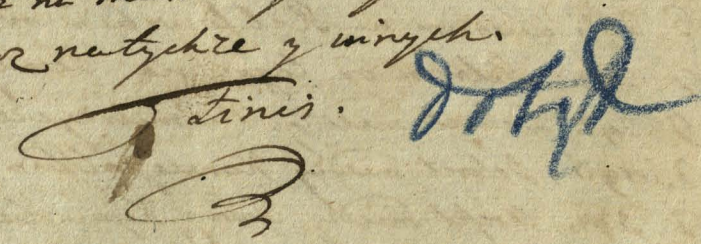 natychże y innych.
Finis.
dotąd